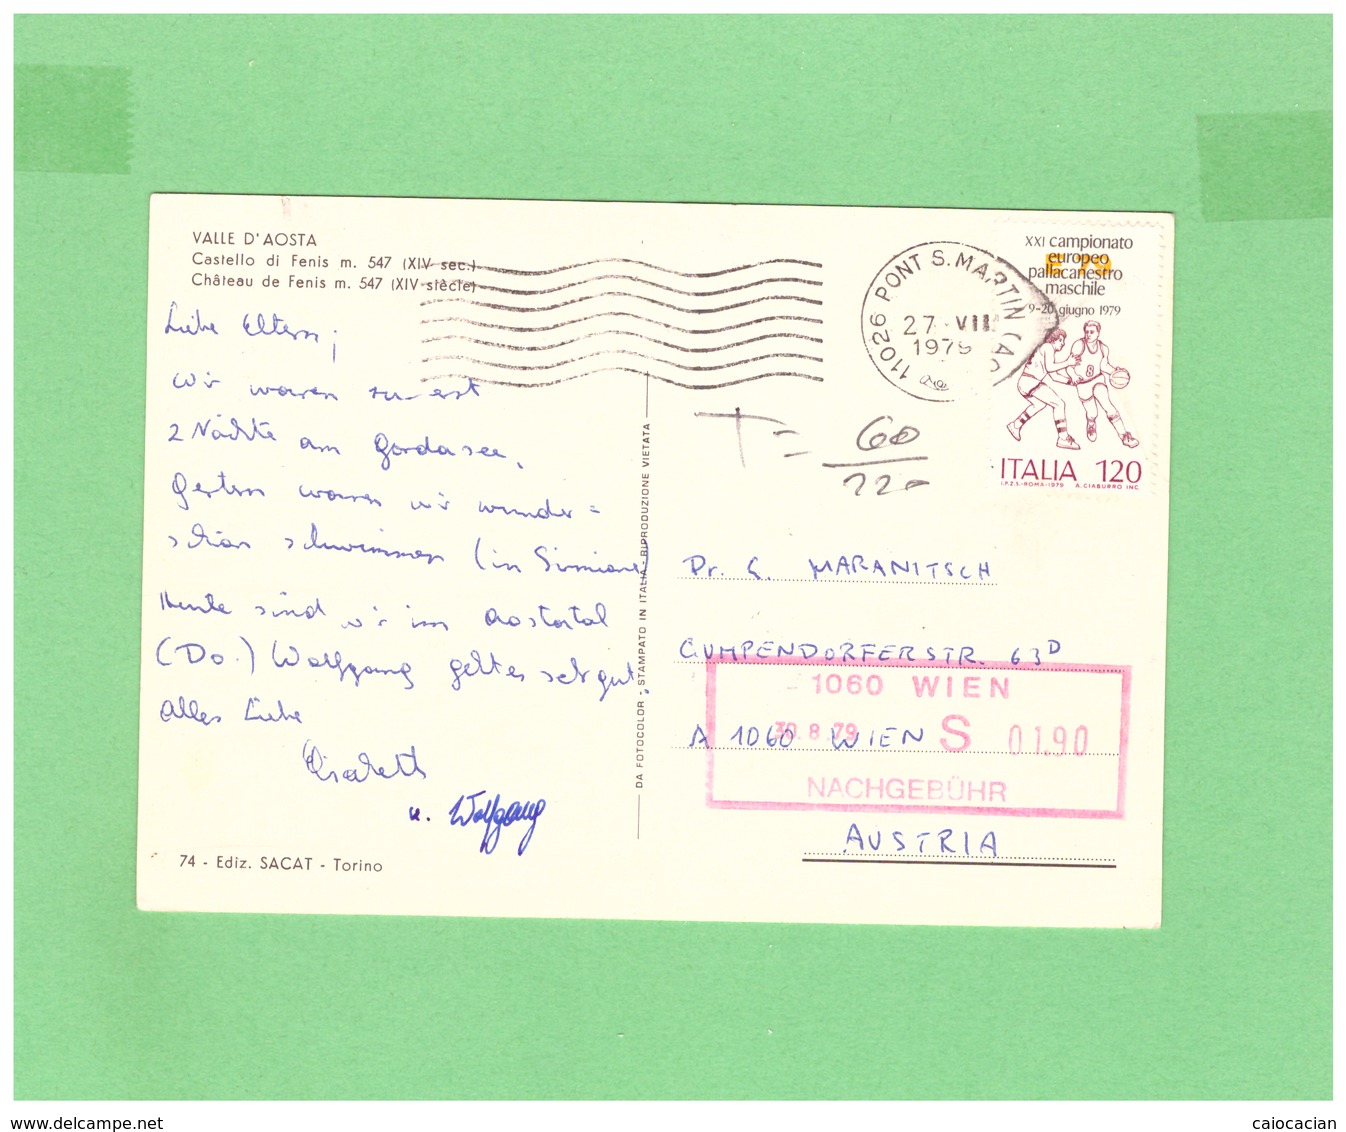 VALLE D'AOSTA
Castello di Fenis m. 547 (XIV sec.)
Château de Fenis m. 547 (XIV siècle)
Liebe Eltern!
Wir waren zuerst
2 Nächte am Gardasee,
Gestern waren wir wunder=
schön schwimmen (in Sirmione)
Heute sind wir im Aostatal
(Do.) Wolfgang geht es sehr gut.
Alles Liebe
Elisabeth
u. Wolfgang
74 - Ediz. SACAT - Torino
DA FOTOCOLOR - STAMPATO IN ITALIA - RIPRODUZIONE VIETATA
11026 PONT S. MARTIN (AO
27 VII
1979
XXI campionato
europeo
pallacanestro
maschile
9-20 giugno 1979
8
ITALIA 120
I.P.Z.S.-ROMA-1979 A. CIABURRO INC.
T = 60
220
Dr. G. MARANITSCH
GUMPENDORFERSTR. 63D
1060 WIEN
30. 8. 79 S 01.90
A 1060 WIEN
NACHGEBÜHR
AUSTRIA
www.delcampe.net
caiocacian